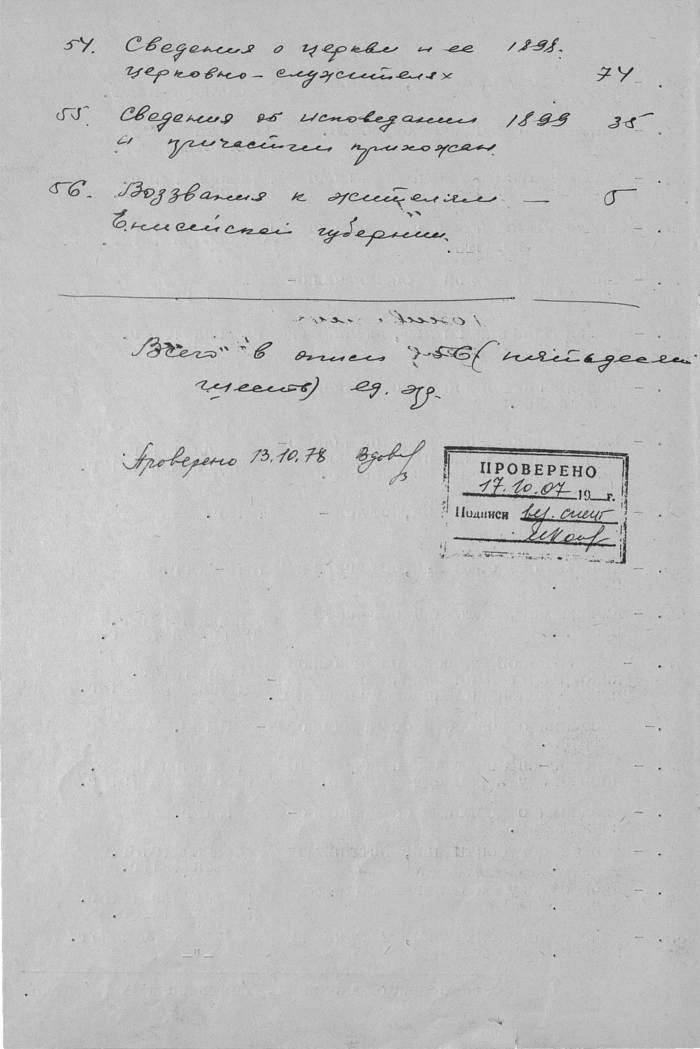 54. Сведения о церкви и ее 1898.
церковно-служителях 74
55. Сведения об исповедании 1899 35
и причастии прихожан
56. Воззвания к жителям — 5
Енисейской губернии.
Всего в описи 56 (пятьдесят
шесть) ед. хр.
Проверено 13.10.78
ПРОВЕРЕНО
17.10.07 19 г.
Подписи